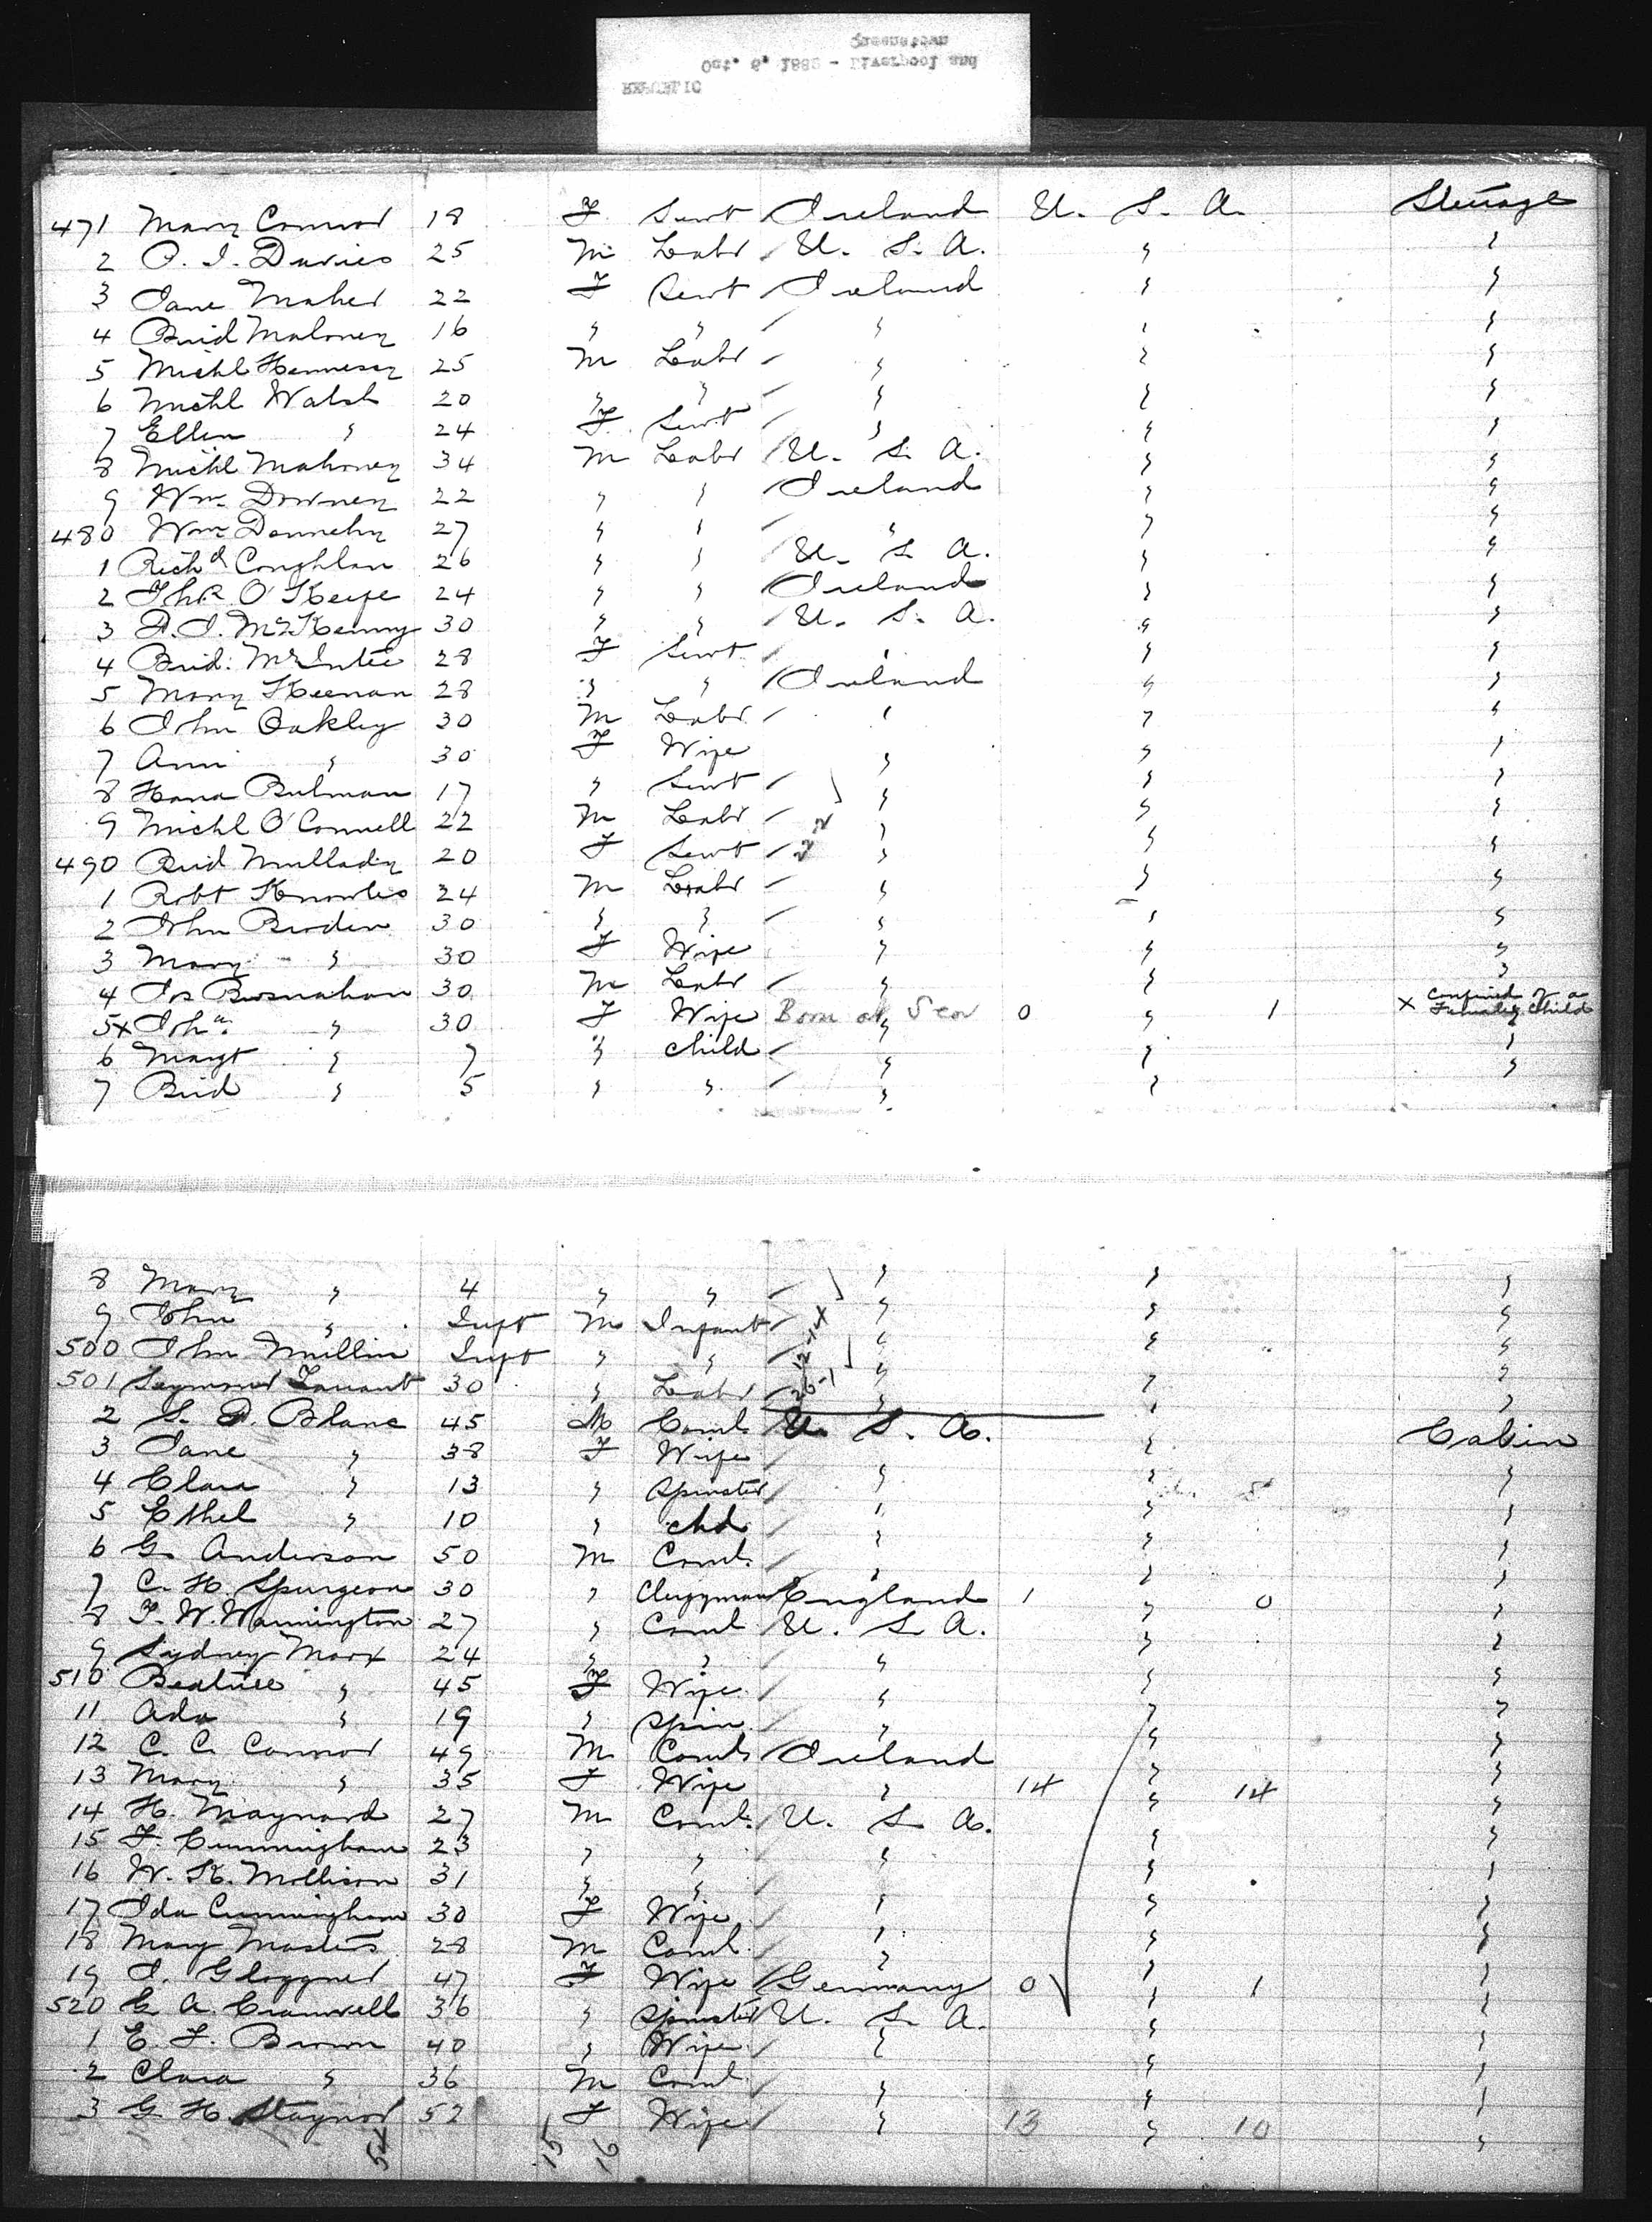 REPUBLIC
Oct. 6, 1882 - Liverpool and
Queenstown
471 Mary Connor 18 F Servt Ireland U. S. A. Steerage
2 P. J. Davies 25 M Labr U. S. A. " "
3 Jane Maher 22 F Servt Ireland " "
4 Brid Maloney 16 " " " " "
5 Michl Hennessy 25 M Labr " " "
6 Michl Walsh 20 " " " " "
7 Ellen " 24 F Servt " " "
8 Michl Mahoney 34 M Labr U. S. A. " "
9 Wm. Downey 22 " " Ireland " "
480 Wm Dennehy 27 " " " " "
1 Richd Coughlan 26 " " U. S. A. " "
2 O'Keefe 24 " " Ireland " "
3 P. J. McKenny 30 " " U. S. A. " "
4 Brid. McEntee 28 F Servt " " "
5 Mary Keenan 28 " " Ireland " "
6 John Oakley 30 M Labr " " "
7 Ann " 30 F Wife " " "
8 Hana Bulman 17 " Servt " " "
9 Michl O'Connell 22 M Labr " " "
490 Brid Mullady 20 F Servt " " "
1 Robt Knowles 24 M Labr " " "
2 John Broden 30 " " " " "
3 Mary " 30 F Wife " " "
4 Jas Brosnahan 30 M Labr " " "
5x Joha " 30 F Wife Born at Sea 0 " 1 x Confined of a Female Child
6 Margt " 7 " child " " "
7 Brid " 5 " " " "
8 Mary " 4 " " " " "
9 John " Inft M Infant " " "
500 John Mullin Inft " " " " "
501 Seymour Tarrant 30 " Labr " " "
2 S. P. Blanc 45 M Coml U. S. A. " Cabin
3 Jane " 38 F Wife " " "
4 Clara " 13 " Spinster " " "
5 Ethel " 10 " chd " " "
6 G. Anderson 50 M Coml. " " "
7 C. H. Spurgeon 30 " Clergyman England 1 " 0 "
8 F. W. Wannington 27 " Coml U. S. A. " "
9 Sydney Marx 24 " " " " "
510 Beatrice " 45 F Wife " " "
11 Ada " 19 " Spin " " "
12 C. C. Connor 49 M Coml Ireland " "
13 Mary " 35 F Wife " 14 " 14 "
14 H. Maynard 27 M Coml. U. S. A. " "
15 F. Cunningham 23 " " " " "
16 W. K. Mollison 31 " " " " "
17 Ida Cunningham 30 F Wife " " "
18 Mary Masters 28 M Coml " " "
19 J. Gloggner 47 F Wife Germany 0 " 1 "
520 E. A. Cromwell 36 " Spinster U. S. A. " "
1 E. F. Brown 40 " Wife " " "
2 Clara " 36 M Coml " " "
3 G. H. Staynor 52 F Wife " 13 " 10 "
15 16